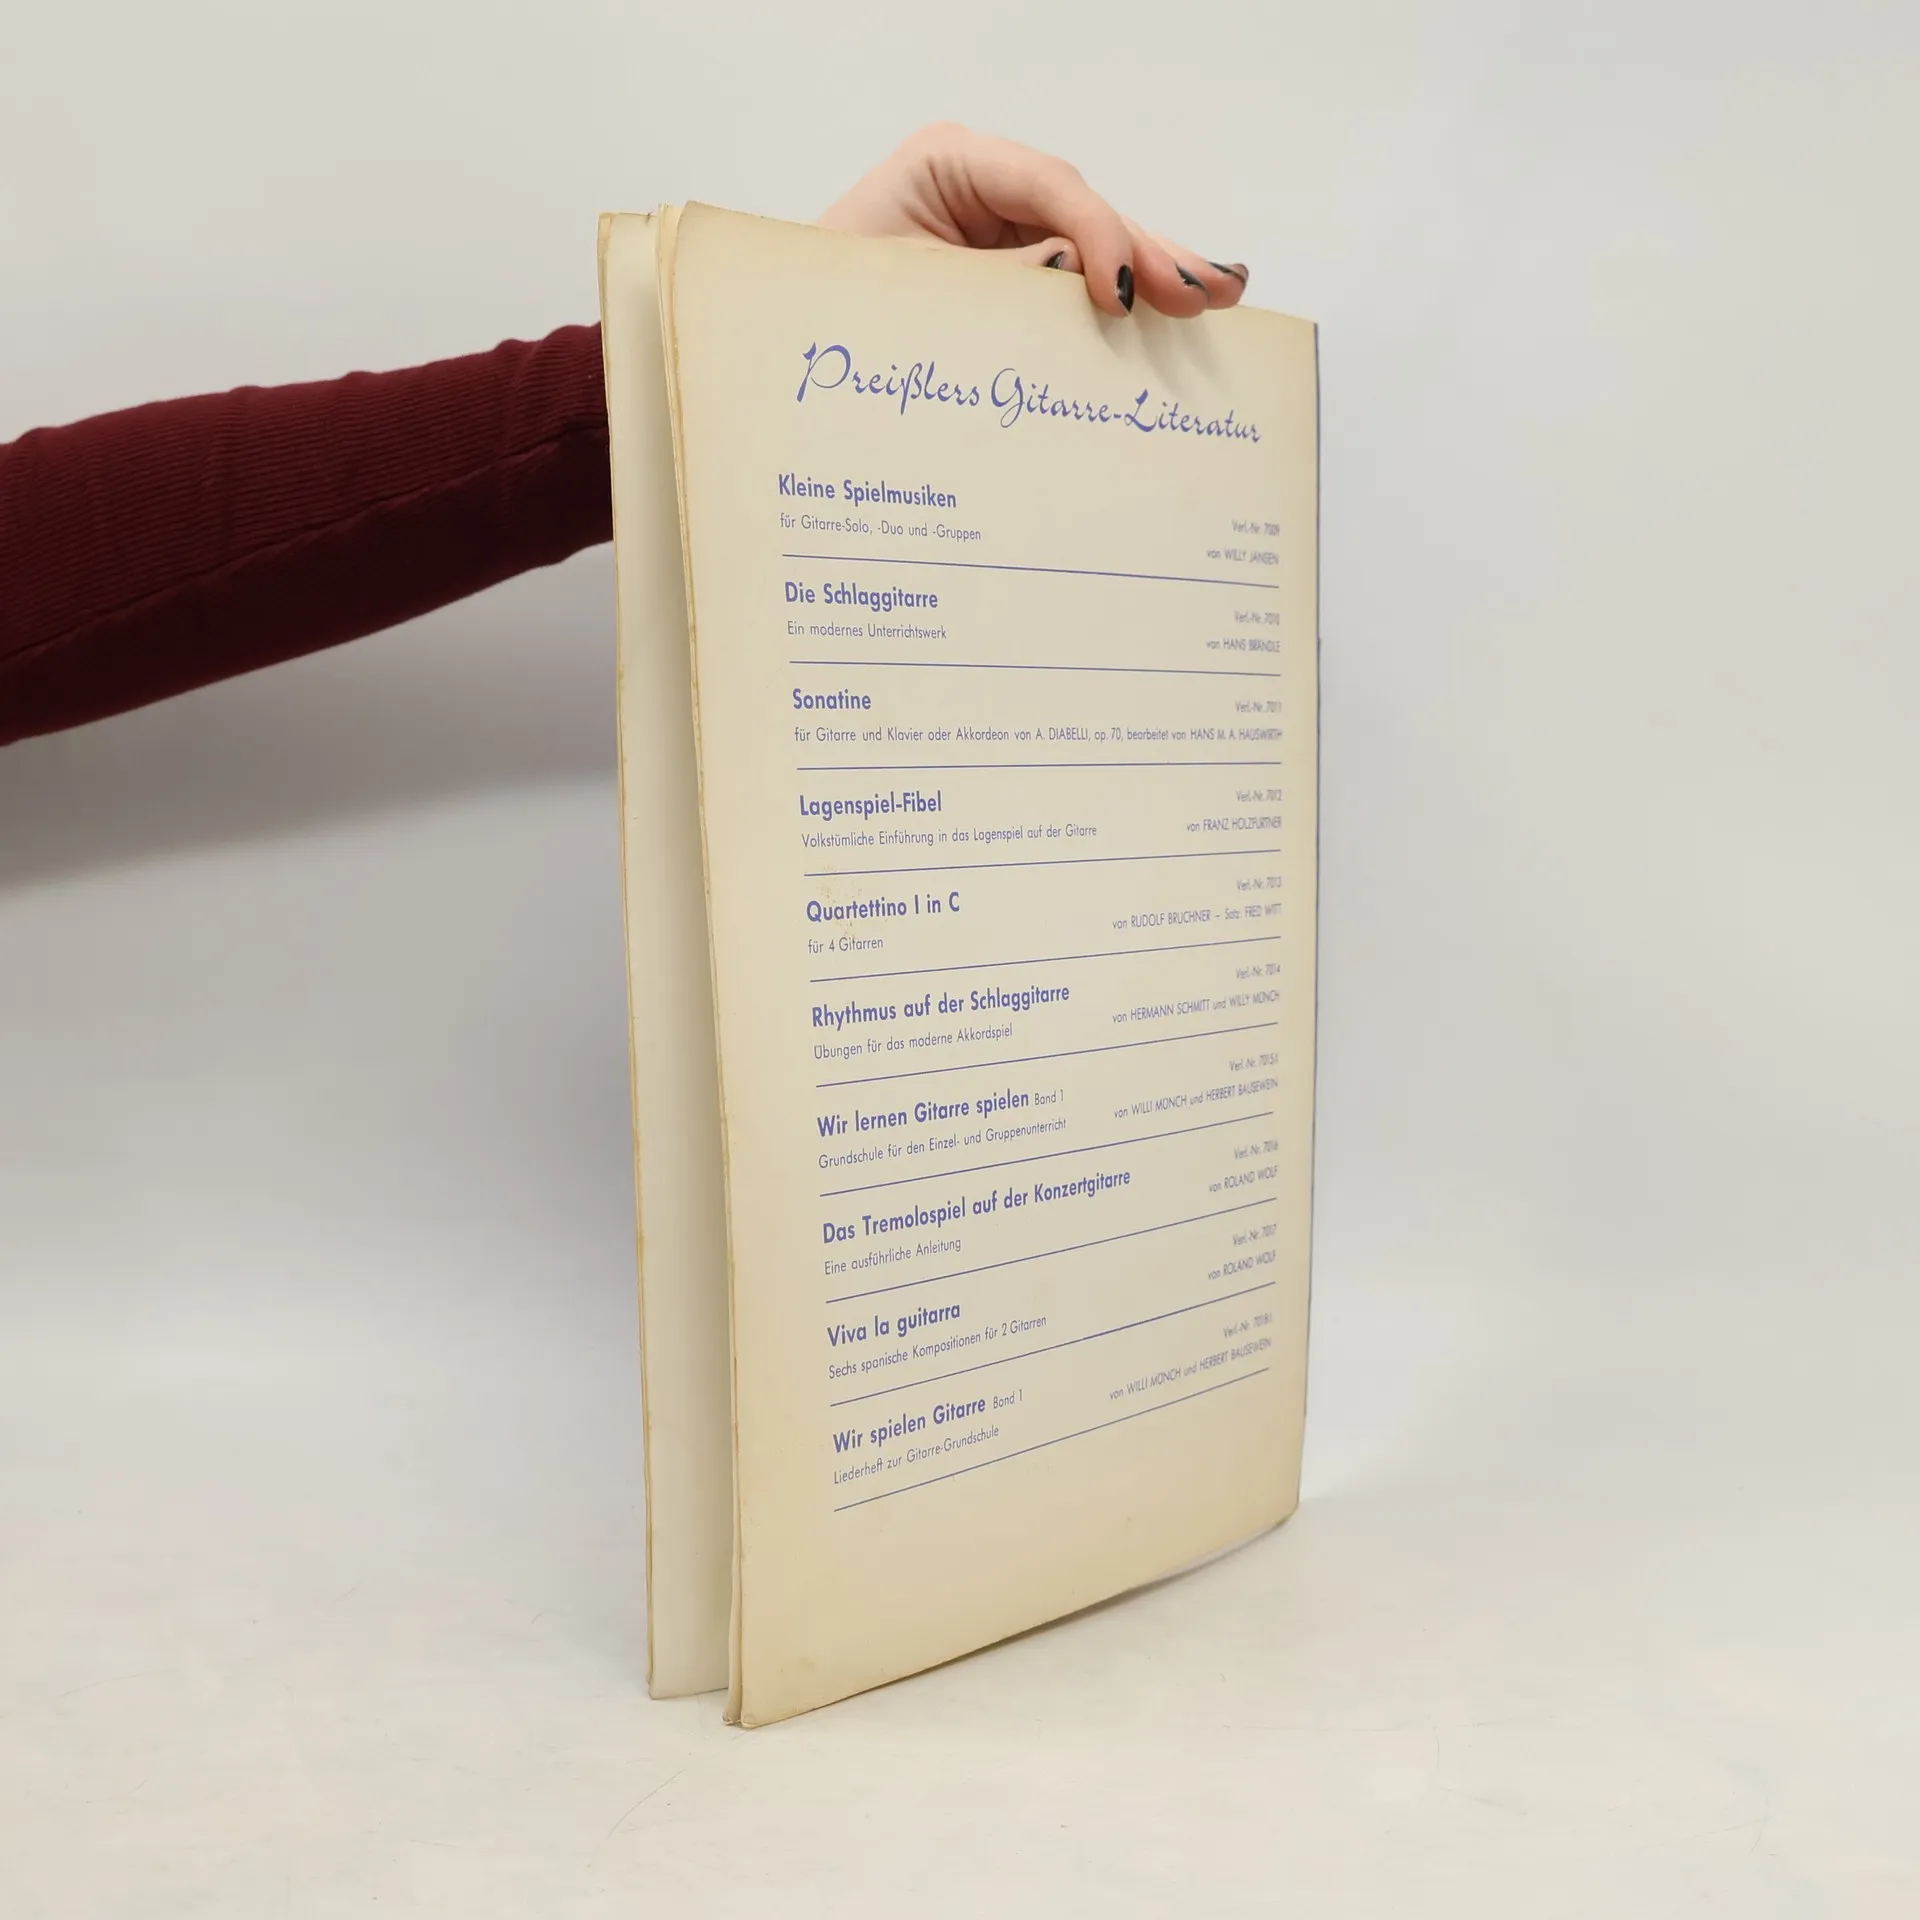 Preißlers Gitarre-Literatur
Kleine Spielmusiken
Verl.-Nr. 7009
für Gitarre-Solo, -Duo und -Gruppen
von WILLY JANSEN
Die Schlaggitarre
Verl.-Nr. 7010
Ein modernes Unterrichtswerk
von HANS BRÄNDLE
Sonatine
Verl.-Nr. 7011
für Gitarre und Klavier oder Akkordeon von A. DIABELLI, op. 70, bearbeitet von HANS M. A. HAUSWIRTH
Lagenspiel-Fibel
Verl.-Nr. 7012
Volkstümliche Einführung in das Lagenspiel auf der Gitarre
von FRANZ HOLZFURTNER
Quartettino I in C
Verl.-Nr. 7013
für 4 Gitarren
von RUDOLF BRUCHNER – Satz: FRED WITT
Rhythmus auf der Schlaggitarre
Verl.-Nr. 7014
Übungen für das moderne Akkordspiel
von HERMANN SCHMITT und WILLY MÜNCH
Wir lernen Gitarre spielen Band 1
Verl.-Nr. 7015/I
Grundschule für den Einzel- und Gruppenunterricht
von WILLI MÜNCH und HERBERT BAUSEWEIN
Das Tremolospiel auf der Konzertgitarre
Verl.-Nr. 7016
Eine ausführliche Anleitung
von ROLAND WOLF
Viva la guitarra
Verl.-Nr. 7017
Sechs spanische Kompositionen für 2 Gitarren
von ROLAND WOLF
Wir spielen Gitarre Band 1
Verl.-Nr. 7018/I
Liederheft zur Gitarre-Grundschule
von WILLI MÜNCH und HERBERT BAUSEWEIN